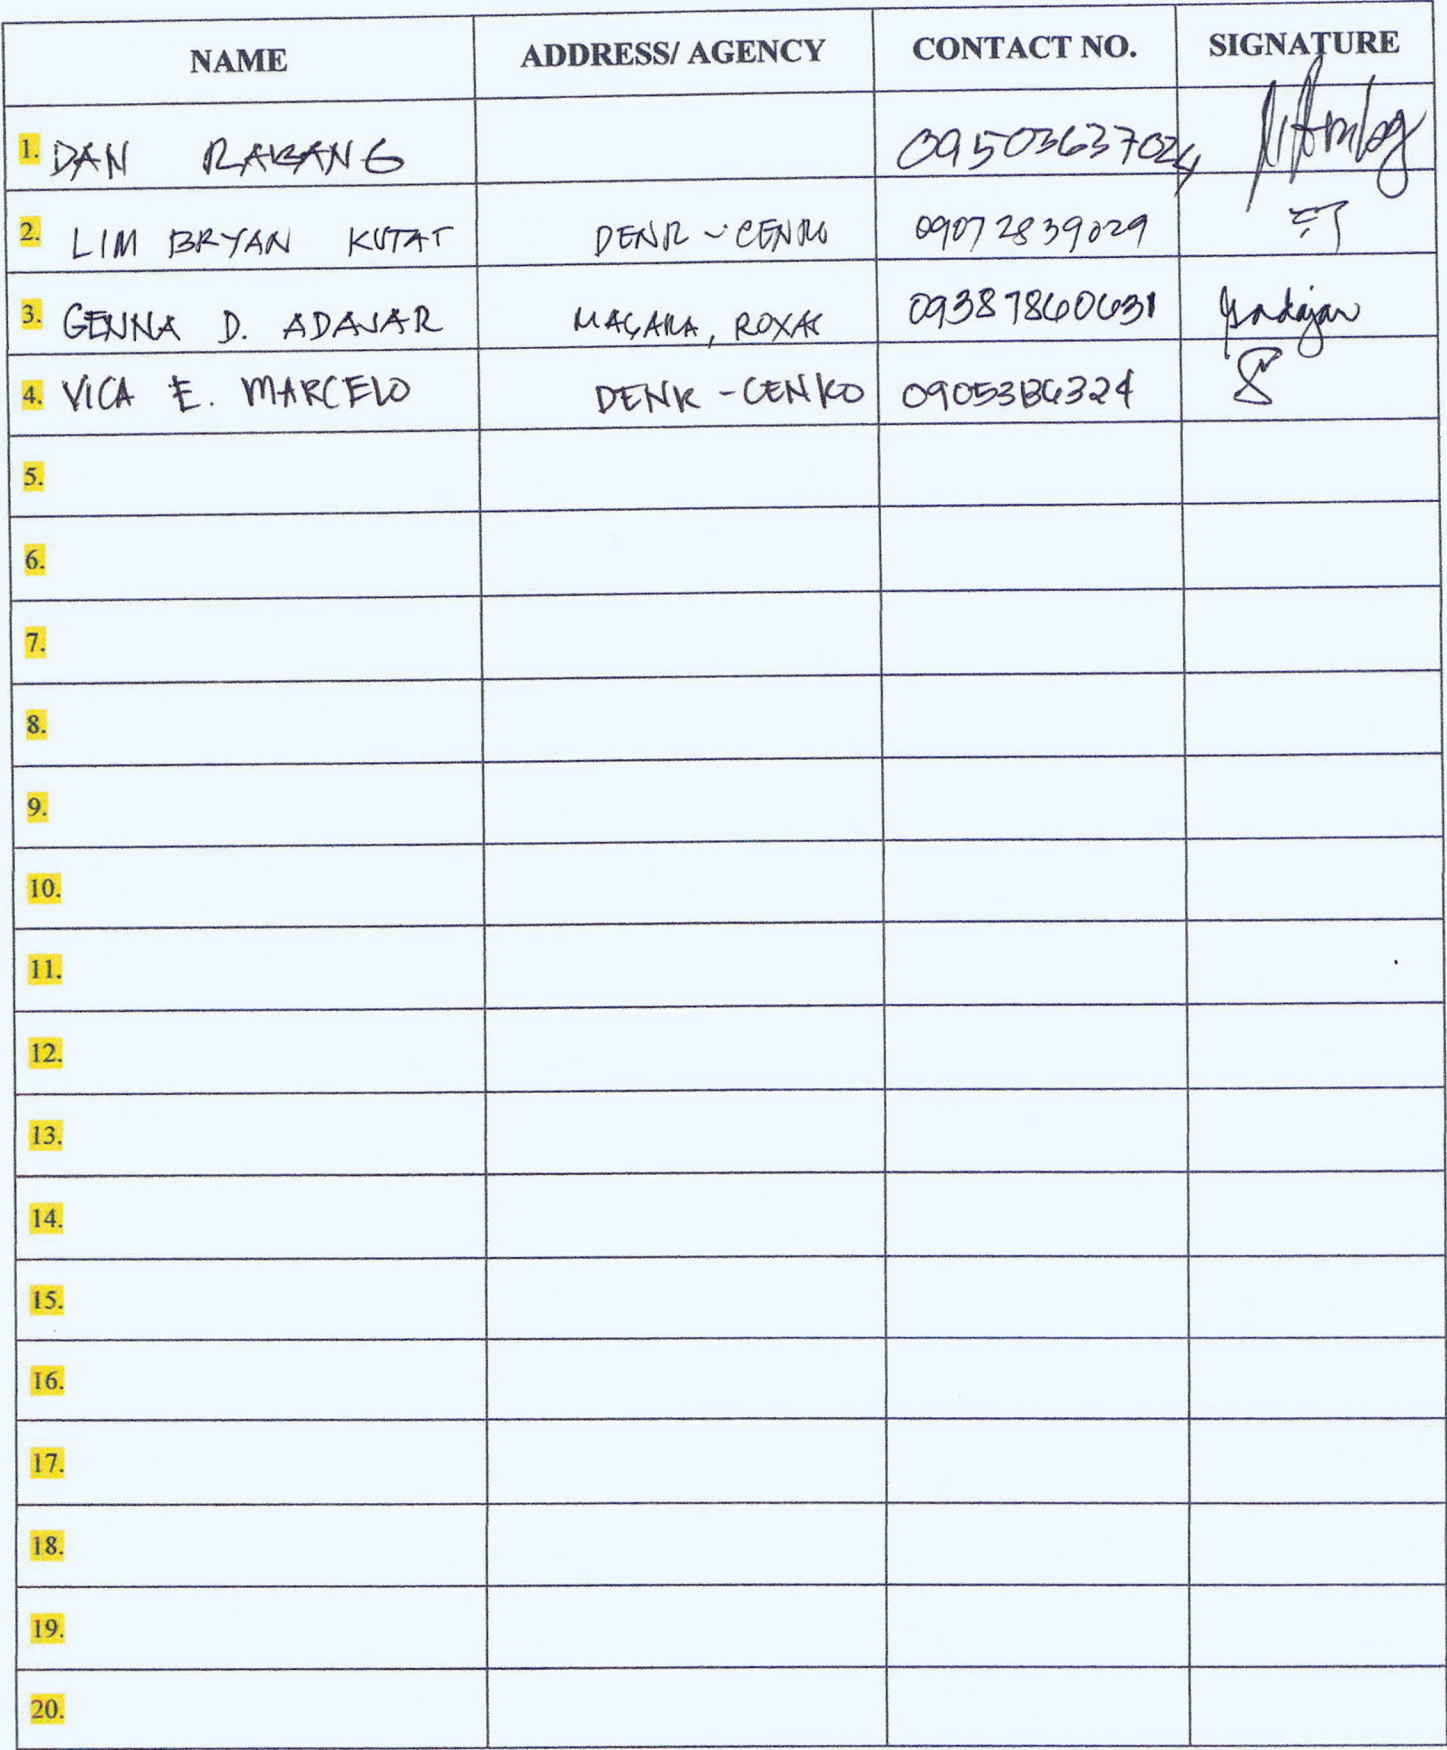 NAME ADDRESS/ AGENCY CONTACT NO. SIGNATURE
1. DAN RABANG 09503637024
2. LIM BRYAN KUTAT DENR - CENRO 09072839029
3. GENNA D. ADAJAR ROXAS 09387860631
4. VICA E. MARCELO DENR - CENRO
5.
6.
7.
8.
9.
10.
11.
12.
13.
14.
15.
16.
17.
18.
19.
20.